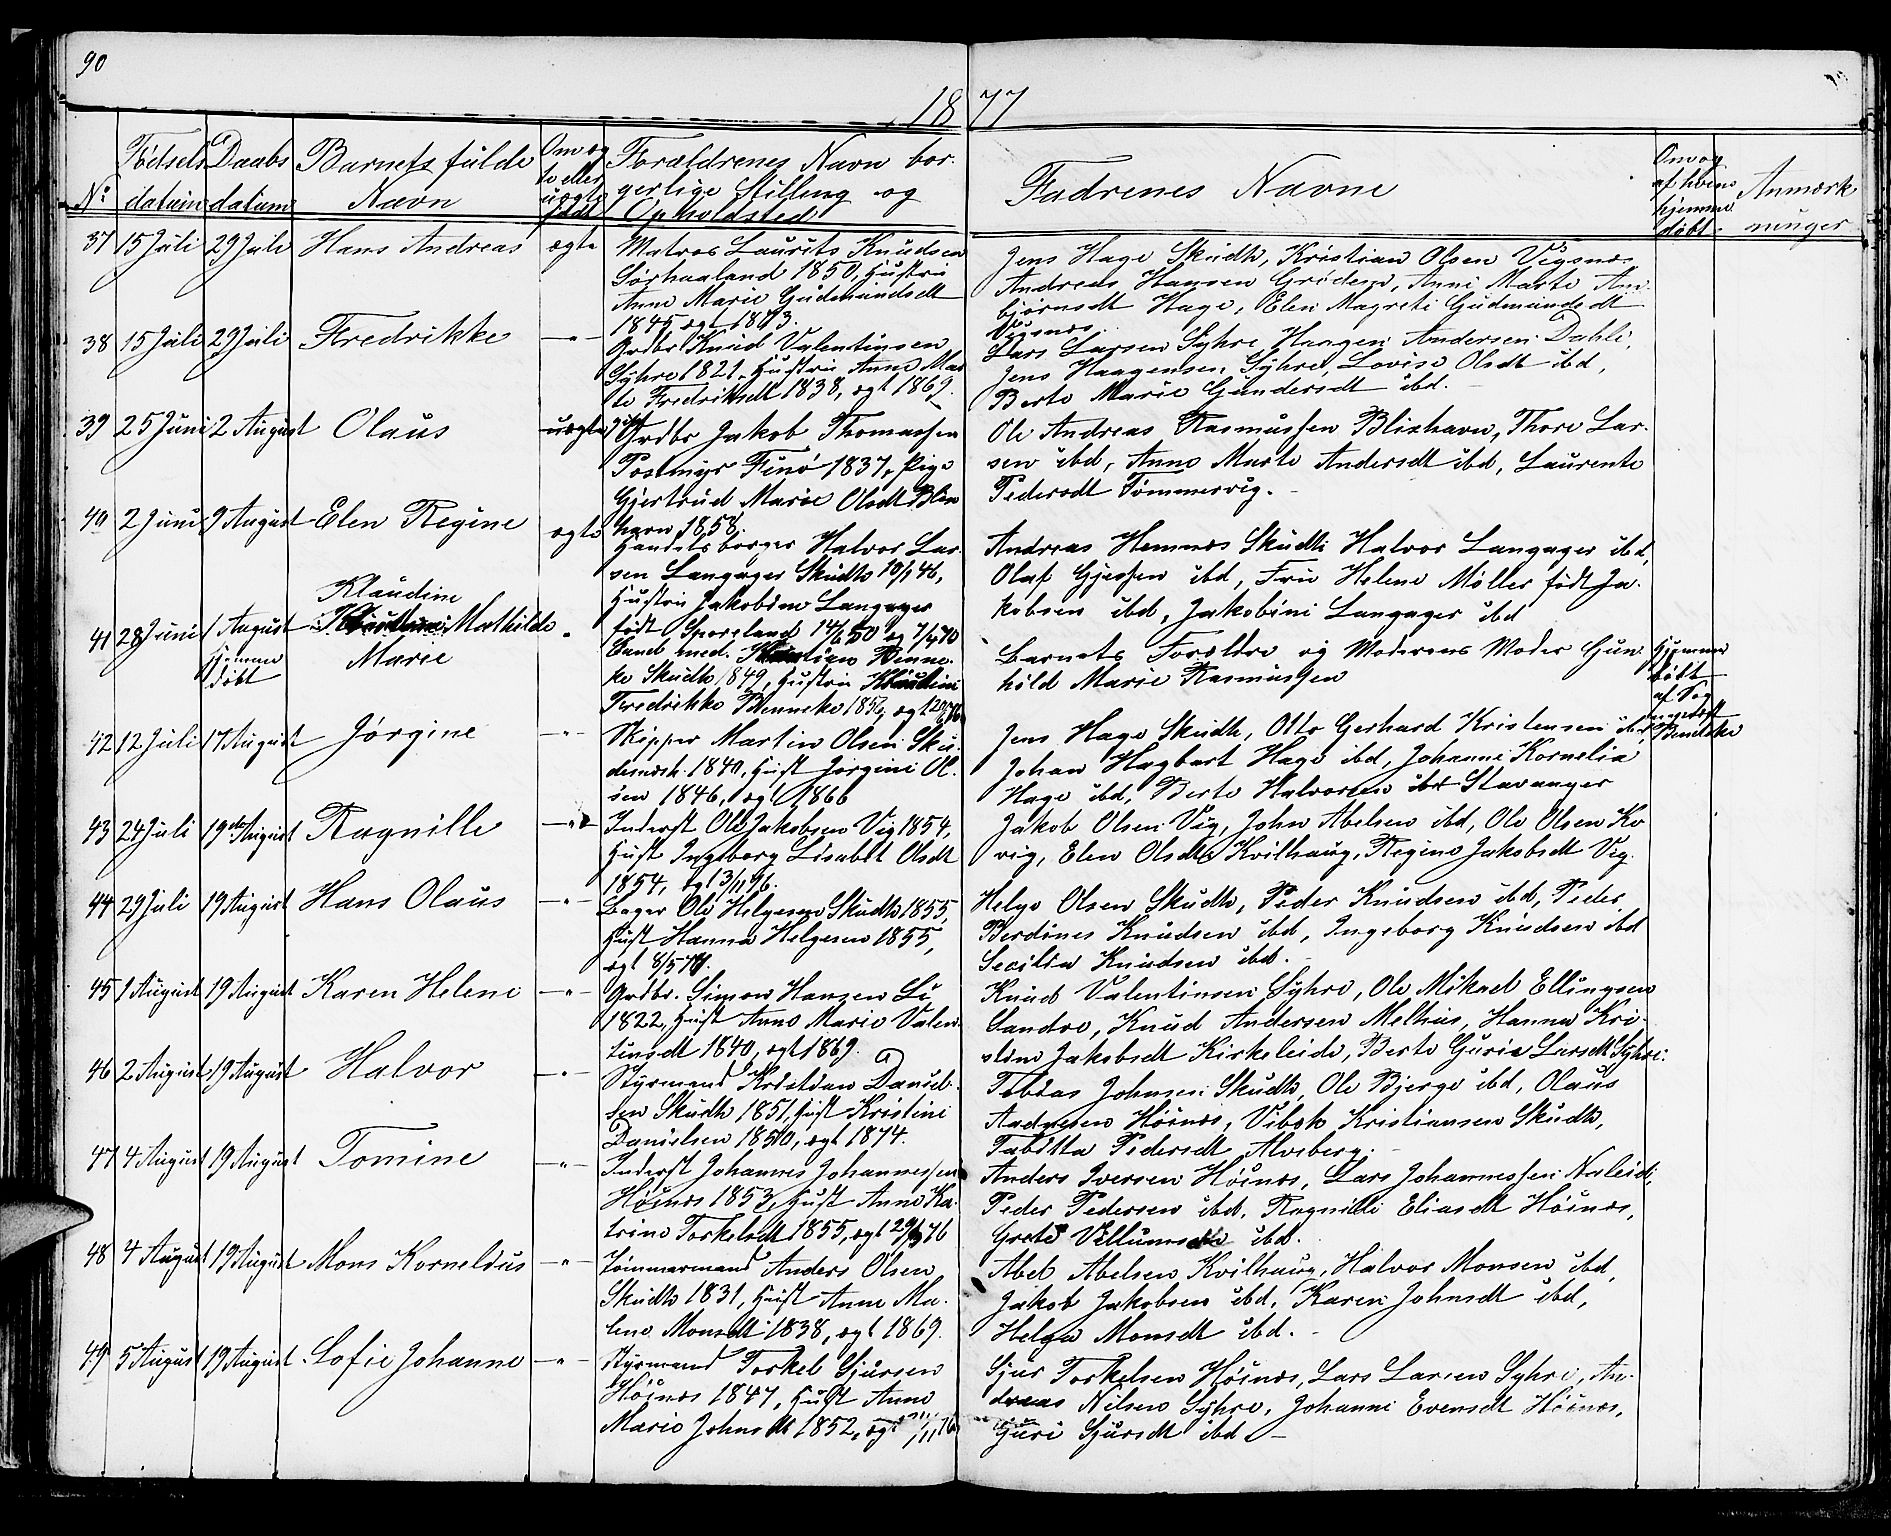 90
1877
No
Fødsels datum
Daabs datum
Barnets fulde Navn
Om ægte eller uægte født
Forældrenes Navn borgerlige Stilling og Opholdsted
Fadrenes Navne
Om og af hvem hjemmedøbt
Anmærkninger
37 15 Juli 29 Juli Hans Andreas ægte
Matros Laurits Knudsen
Sørhaaland 1850, Hustru
Anne Marie Gudmundsdt
1845 ægt 1873.
Jens Hage Skudh, Kristian Olsen Vigsnes
Andreas Hansen Grødem, Anne Marte Am-
bjørnsdt Hage, Elen Magrete Gudmundsdt
Vigsnes.
38 15 Juli 29 Juli Fredrikke —"—
Grdbr Knud Valentinsen
Syhre 1821, Hustru Anne Mar
te Fredriksdt 1838, ægt 1869.
Lars Larsen Syhre Haagen Andersen Dahle,
Jens Haagensen Syhre, Lovise Olsdt ibd,
Berte Marie Gundersdt ibd.
39 25 Juni 2 August Olaus uægte
Grdbr Jakob Thomassen
Postmyr Finø 1837, Pige
Gjertrud Marie Olsdt Blix
havn 1858.
Ole Andreas Rasmussen Blixhavn, Thore Lar-
sen ibd, Anne Marte Andersdt ibd, Laurente
Pedersdt Tømmervig.
40 2 Juni 9 August Elen Regine ægte
Handelsborger Halvor Lar-
sen Langager Skudh 10/1 46,
Hustru Jakobine Langager
født Sporeland 14/6 50 æg 7/4 70
Andreas Hemnes Skudh Halvor Langager ibd,
Olaf Gjessen ibd, Frue Helene Møller født Ja-
kobsen ibd, Jakobine Langager ibd
41 28 Juni 1 August hjemmedøbt Klaudine Mathilde Marie "
Cand med. Kristian Benne-
ke Skudh 1849, Hustru Klaudine
Fredrikke Benneke 1856, ægt
Barnets Forældre og Moderens Moder Gun-
hild Marie Rasmussen
Hjemme
døbt
af
Benneke
42 12 Juli 17 August Jørgine —"—
Skipper Martin Olsen Sku-
desnesh. 1840, Hust Jørgine Ol-
sen 1846, ægt 1866
Jens Hage Skudh, Otto Gerhard Kristensen ibd
Johan Hagbart Hage ibd, Johanne Kornelia
Hage ibd, Berte Halvorsen Stavanger
43 24 Juli 19de August Ragnille —"—
Inderst Ole Jakobsen Vig 1854,
Hust Ingeborg Lisabet Olsdt
1854, ægt 3/11 76.
Jakob Olsen Vig, John Abelsen ibd, Ole Olsen Kv
vig, Elen Olsdt Kvilhaug, Regine Jakobsdt Vig.
44 29 Juli 19 August Hans Olaus —"—
Bager Ole Helgesen Skudh 1855,
Hust Hanna Helgesen 1855,
ægt 8/5 77.
Helge Olsen Skudh, Peder Knudsen ibd, Peder
Berdines Knudsen ibd, Ingeborg Knudsen ibd
Secilia Knudsen ibd.
45 1 August 19 August Karen Helene —"—
Grdbr. Simon Hansen Li
1822, Hust Anne Marie Valen-
tinsdt 1840, ægt 1869.
Knud Valentinsen Syhre, Ole Mikael Ellingsen
Sandve, Knud Andersen Melhus, Hanna Kri-
stine Jakobsdt Kirkeleide, Berte Gurie Larsdt Syhre.
46 2 August 19 August Halvor —"—
Styrmand Kristian Daniel-
sen Skudh 1851, Hust Kristine
Danielsen 1850, ægt 1874.
Tobias Johnsen Skudh, Ole Bjerge ibd, Olaus
Andresen Høines, Vibek Kristiansen Skudh,
Tabitta Pedersdt Alvsberg.
47 4 August 19 August Tomine —"—
Inderst Johannes Johannessen
Høines 1853, Hust Anne Ka-
trine Torkelsdt 1855, ægt 76
Anders Iversen Høines, Lars Johannessen Naleide,
Peder Pedersen ibd, Ragnille Eliasdt Høines,
Grete ibd.
48 4 August 19 August Mons Kornelius —"—
Tømmermand Anders Olsen
Skudh 1831, Hust Anne Ma-
lene Monsdt 1838, ægt 1869.
Abel Abelsen Kvilhaug, Halvor Monsen ibd,
Jakob Jakobsen ibd, Karen Johnsdt ibd,
Helga Monsdt ibd.
49 5 August 19 August Sofie Johanne —"—
Styrmand Torkel Sjursen
Høines 1847, Hust Anne
Marie Johnsdt 1852, ægt
Sjur Torkelsen Høines, Lars Larsen Syhre, An-
dreas Nilsen Syhre, Johanne Evensdt Høines,
Guri Sjursdt ibd.